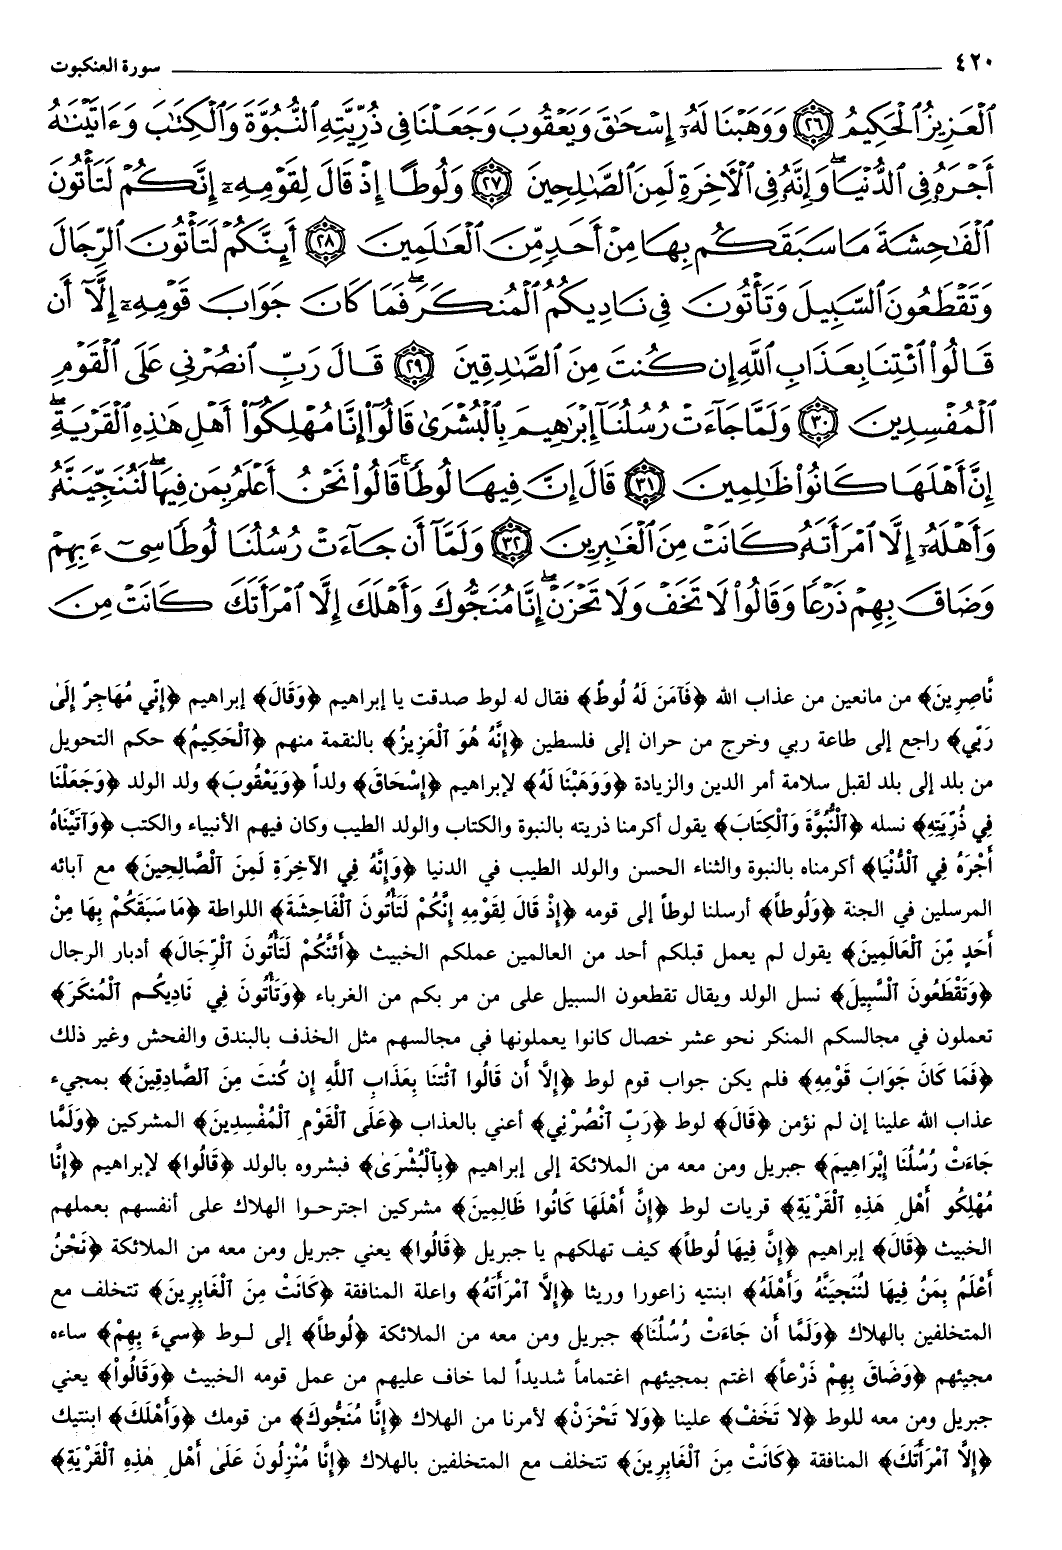 ٤٢٠ سورة العنكبوت
ٱلْعَزِيزُ ٱلْحَكِيمُ ٢٦ وَوَهَبْنَا لَهُۥٓ إِسْحَٰقَ وَيَعْقُوبَ وَجَعَلْنَا فِى ذُرِّيَّتِهِ ٱلنُّبُوَّةَ وَٱلْكِتَٰبَ وَءَاتَيْنَٰهُ
أَجْرَهُۥ فِى ٱلدُّنْيَا ۖ وَإِنَّهُۥ فِى ٱلْءَاخِرَةِ لَمِنَ ٱلصَّٰلِحِينَ ٢٧ وَلُوطًا إِذْ قَالَ لِقَوْمِهِۦٓ إِنَّكُمْ لَتَأْتُونَ
ٱلْفَٰحِشَةَ مَا سَبَقَكُم بِهَا مِنْ أَحَدٍ مِّنَ ٱلْعَٰلَمِينَ ٢٨ أَئِنَّكُمْ لَتَأْتُونَ ٱلرِّجَالَ
وَتَقْطَعُونَ ٱلسَّبِيلَ وَتَأْتُونَ فِى نَادِيكُمُ ٱلْمُنكَرَ ۖ فَمَا كَانَ جَوَابَ قَوْمِهِۦٓ إِلَّآ أَن
قَالُوا۟ ٱئْتِنَا بِعَذَابِ ٱللَّهِ إِن كُنتَ مِنَ ٱلصَّٰدِقِينَ ٢٩ قَالَ رَبِّ ٱنصُرْنِى عَلَى ٱلْقَوْمِ
ٱلْمُفْسِدِينَ ٣٠ وَلَمَّا جَآءَتْ رُسُلُنَآ إِبْرَٰهِيمَ بِٱلْبُشْرَىٰ قَالُوٓا۟ إِنَّا مُهْلِكُوٓا۟ أَهْلِ هَٰذِهِ ٱلْقَرْيَةِ ۖ
إِنَّ أَهْلَهَا كَانُوا۟ ظَٰلِمِينَ ٣١ قَالَ إِنَّ فِيهَا لُوطًا ۚ قَالُوا۟ نَحْنُ أَعْلَمُ بِمَن فِيهَا ۖ لَنُنَجِّيَنَّهُۥ
وَأَهْلَهُۥٓ إِلَّا ٱمْرَأَتَهُۥ كَانَتْ مِنَ ٱلْغَٰبِرِينَ ٣٢ وَلَمَّآ أَن جَآءَتْ رُسُلُنَا لُوطًا سِىٓءَ بِهِمْ
وَضَاقَ بِهِمْ ذَرْعًا وَقَالُوا۟ لَا تَخَفْ وَلَا تَحْزَنْ ۖ إِنَّا مُنَجُّوكَ وَأَهْلَكَ إِلَّا ٱمْرَأَتَكَ كَانَتْ مِنَ
نَّاصِرِينَ﴾ من مانعين من عذاب الله ﴿فَآمَنَ لَهُ لُوطٌ﴾ فقال له لوط صدقت يا إبراهيم ﴿وَقَالَ﴾ إبراهيم ﴿إِنِّي مُهَاجِرٌ إِلَىٰ
رَبِّي﴾ راجع إلى طاعة ربي وخرج من حران إلى فلسطين ﴿إِنَّهُ هُوَ ٱلْعَزِيزُ﴾ بالنقمة منهم ﴿ٱلْحَكِيمُ﴾ حكم التحويل
من بلد إلى بلد لقبل سلامة أمر الدين والزيادة ﴿وَوَهَبْنَا لَهُ﴾ لإبراهيم ﴿إِسْحَاقَ﴾ ولداً ﴿وَيَعْقُوبَ﴾ ولد الولد ﴿وَجَعَلْنَا
فِي ذُرِّيَّتِهِ﴾ نسله ﴿ٱلْنُّبُوَّةَ وَٱلْكِتَابَ﴾ يقول أكرمنا ذريته بالنبوة والكتاب والولد الطيب وكان فيهم الأنبياء والكتب ﴿وَآتَيْنَاهُ
أَجْرَهُ فِي ٱلْدُّنْيَا﴾ أكرمناه بالنبوة والثناء الحسن والولد الطيب في الدنيا ﴿وَإِنَّهُ فِي الآخِرَةِ لَمِنَ ٱلْصَّالِحِينَ﴾ مع آبائه
المرسلين في الجنة ﴿وَلُوطاً﴾ أرسلنا لوطاً إلى قومه ﴿إِذْ قَالَ لِقَوْمِهِ إِنَّكُمْ لَتَأْتُونَ ٱلْفَاحِشَةَ﴾ اللواطة ﴿مَا سَبَقَكُمْ بِهَا مِنْ
أَحَدٍ مِّنَ ٱلْعَالَمِينَ﴾ يقول لم يعمل قبلكم أحد من العالمين عملكم الخبيث ﴿أَئِنَّكُمْ لَتَأْتُونَ ٱلْرِّجَالَ﴾ أدبار الرجال
﴿وَتَقْطَعُونَ ٱلْسَّبِيلَ﴾ نسل الولد ويقال تقطعون السبيل على من مر بكم من الغرباء ﴿وَتَأْتُونَ فِي نَادِيكُم ٱلْمُنكَرَ﴾
تعملون في مجالسكم المنكر نحو عشر خصال كانوا يعملونها في مجالسهم مثل الخذف بالبندق والفحش وغير ذلك
﴿فَمَا كَانَ جَوَابَ قَوْمِهِ﴾ فلم يكن جواب قوم لوط ﴿إِلَّا أَن قَالُوا ٱئْتِنَا بِعَذَابِ ٱللَّهِ إِن كُنتَ مِنَ ٱلصَّادِقِينَ﴾ بمجيء
عذاب الله علينا إن لم نؤمن ﴿قَالَ﴾ لوط ﴿رَبِّ ٱنْصُرْنِي﴾ أعني بالعذاب ﴿عَلَى ٱلْقَوْمِ ٱلْمُفْسِدِينَ﴾ المشركين ﴿وَلَمَّا
جَاءَتْ رُسُلُنَا إِبْرَاهِيمَ﴾ جبريل ومن معه من الملائكة إلى إبراهيم ﴿بِٱلْبُشْرَىٰ﴾ فبشروه بالولد ﴿قَالُوا﴾ لإبراهيم ﴿إِنَّا
مُهْلِكُو أَهْلِ هَذِهِ ٱلْقَرْيَةِ﴾ قريات لوط ﴿إِنَّ أَهْلَهَا كَانُوا ظَالِمِينَ﴾ مشركين اجترحوا الهلاك على أنفسهم بعملهم
الخبيث ﴿قَالَ﴾ إبراهيم ﴿إِنَّ فِيهَا لُوطاً﴾ كيف تهلكهم يا جبريل ﴿قَالُوا﴾ يعني جبريل ومن معه من الملائكة ﴿نَحْنُ
أَعْلَمُ بِمَنْ فِيهَا لَنُنَجِّيَنَّهُ وَأَهْلَهُ﴾ ابنتيه زاعورا وريثا ﴿إِلَّا ٱمْرَأَتَهُ﴾ واعلة المنافقة ﴿كَانَتْ مِنَ ٱلْغَابِرِينَ﴾ تتخلف مع
المتخلفين بالهلاك ﴿وَلَمَّا أَن جَاءَتْ رُسُلُنَا﴾ جبريل ومن معه من الملائكة ﴿لُوطاً﴾ إلى لوط ﴿سيءَ بِهِمْ﴾ ساءه
مجيئهم ﴿وَضَاقَ بِهِمْ ذَرْعاً﴾ اغتم بمجيئهم اغتماماً شديداً لما خاف عليهم من عمل قومه الخبيث ﴿وَقَالُواْ﴾ يعني
جبريل ومن معه للوط ﴿لا تَخَفْ﴾ علينا ﴿وَلا تَحْزَنْ﴾ لأمرنا من الهلاك ﴿إِنَّا مُنَجُّوكَ﴾ من قومك ﴿وَأَهْلَكَ﴾ ابنتيك
﴿إِلَّا ٱمْرَأَتَكَ﴾ المنافقة ﴿كَانَتْ مِنَ ٱلْغَابِرِينَ﴾ تتخلف مع المتخلفين بالهلاك ﴿إِنَّا مُنْزِلُونَ عَلَىٰ أَهْلِ هٰذِهِ ٱلْقَرْيَةِ﴾